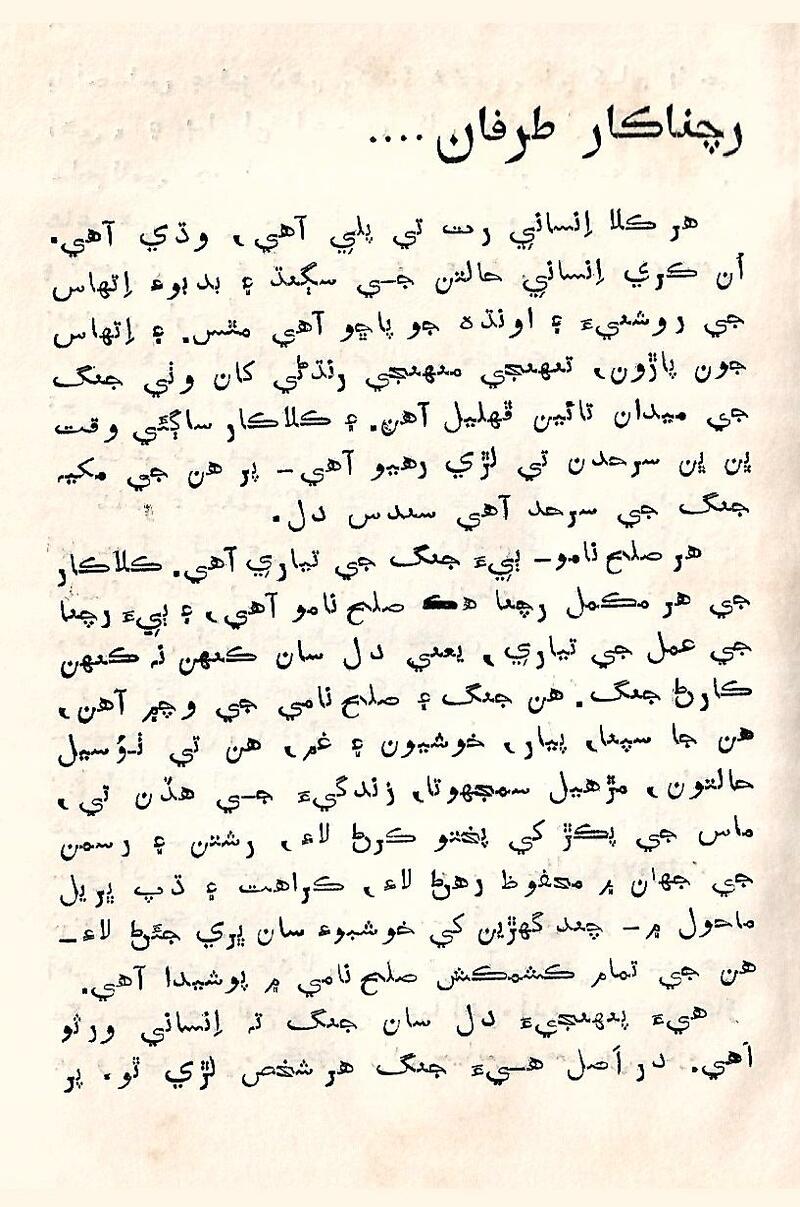 رچناڪار طرفان....
هر ڪلا اِنساني رت تي پلي آهي، وڌي آهي.
اُن ڪري اِنساني حالتن جي سڳنڌ ۽ بدبوءِ اِتهاس
جي روشنيءَ ۽ اونڌه جو پاڇو آهي مٿس. ۽ اِتهاس
جون پاڙون، تنهنجي منهنجي رنڌڻي کان وٺي جنگ
جي ميدان تائين ڦهليل آهن. ۽ ڪلاڪار ساڳئي وقت
ٻن ٻن سرحدن تي لڙي رهيو آهي- پر هن جي مکيه
جنگ جي سرحد آهي سندس دل.
هر صلح نامو- ٻيءَ جنگ جي تياري آهي. ڪلاڪار
جي هر مڪمل رچنا هڪ صلح نامو آهي، ۽ ٻيءَ رچنا
جي عمل جي تياري، يعني دل سان ڪنهن نہ ڪنهن
ڪارڻ جنگ. هن جنگ ۽ صلح نامي جي وچ ۾ آهن،
هن جا سپنا، پيار، خوشيون ۽ غم، هن تي ٺوسيل
حالتون، مڙهيل سمجهوتا، زندگيءَ جي هڏن تي،
ماس جي پڪڙ کي پختو ڪرڻ لاءِ، رشتن ۽ رسمن
جي جهان ۾ محفوظ رهڻ لاءِ، ڪراهت ۽ ڌپ ڀريل
ماحول ۾- چند گهڙين کي خوشبوءِ سان ڀري جئڻ لاءِ-
هن جي تمام ڪشمڪش صلح نامي ۾ پوشيدا آهي.
هيءَ پنهنجيءَ دل سان جنگ تہ اِنساني ورثو
آهي. در اَصل هيءَ جنگ هر شخص لڙي ٿو. پر